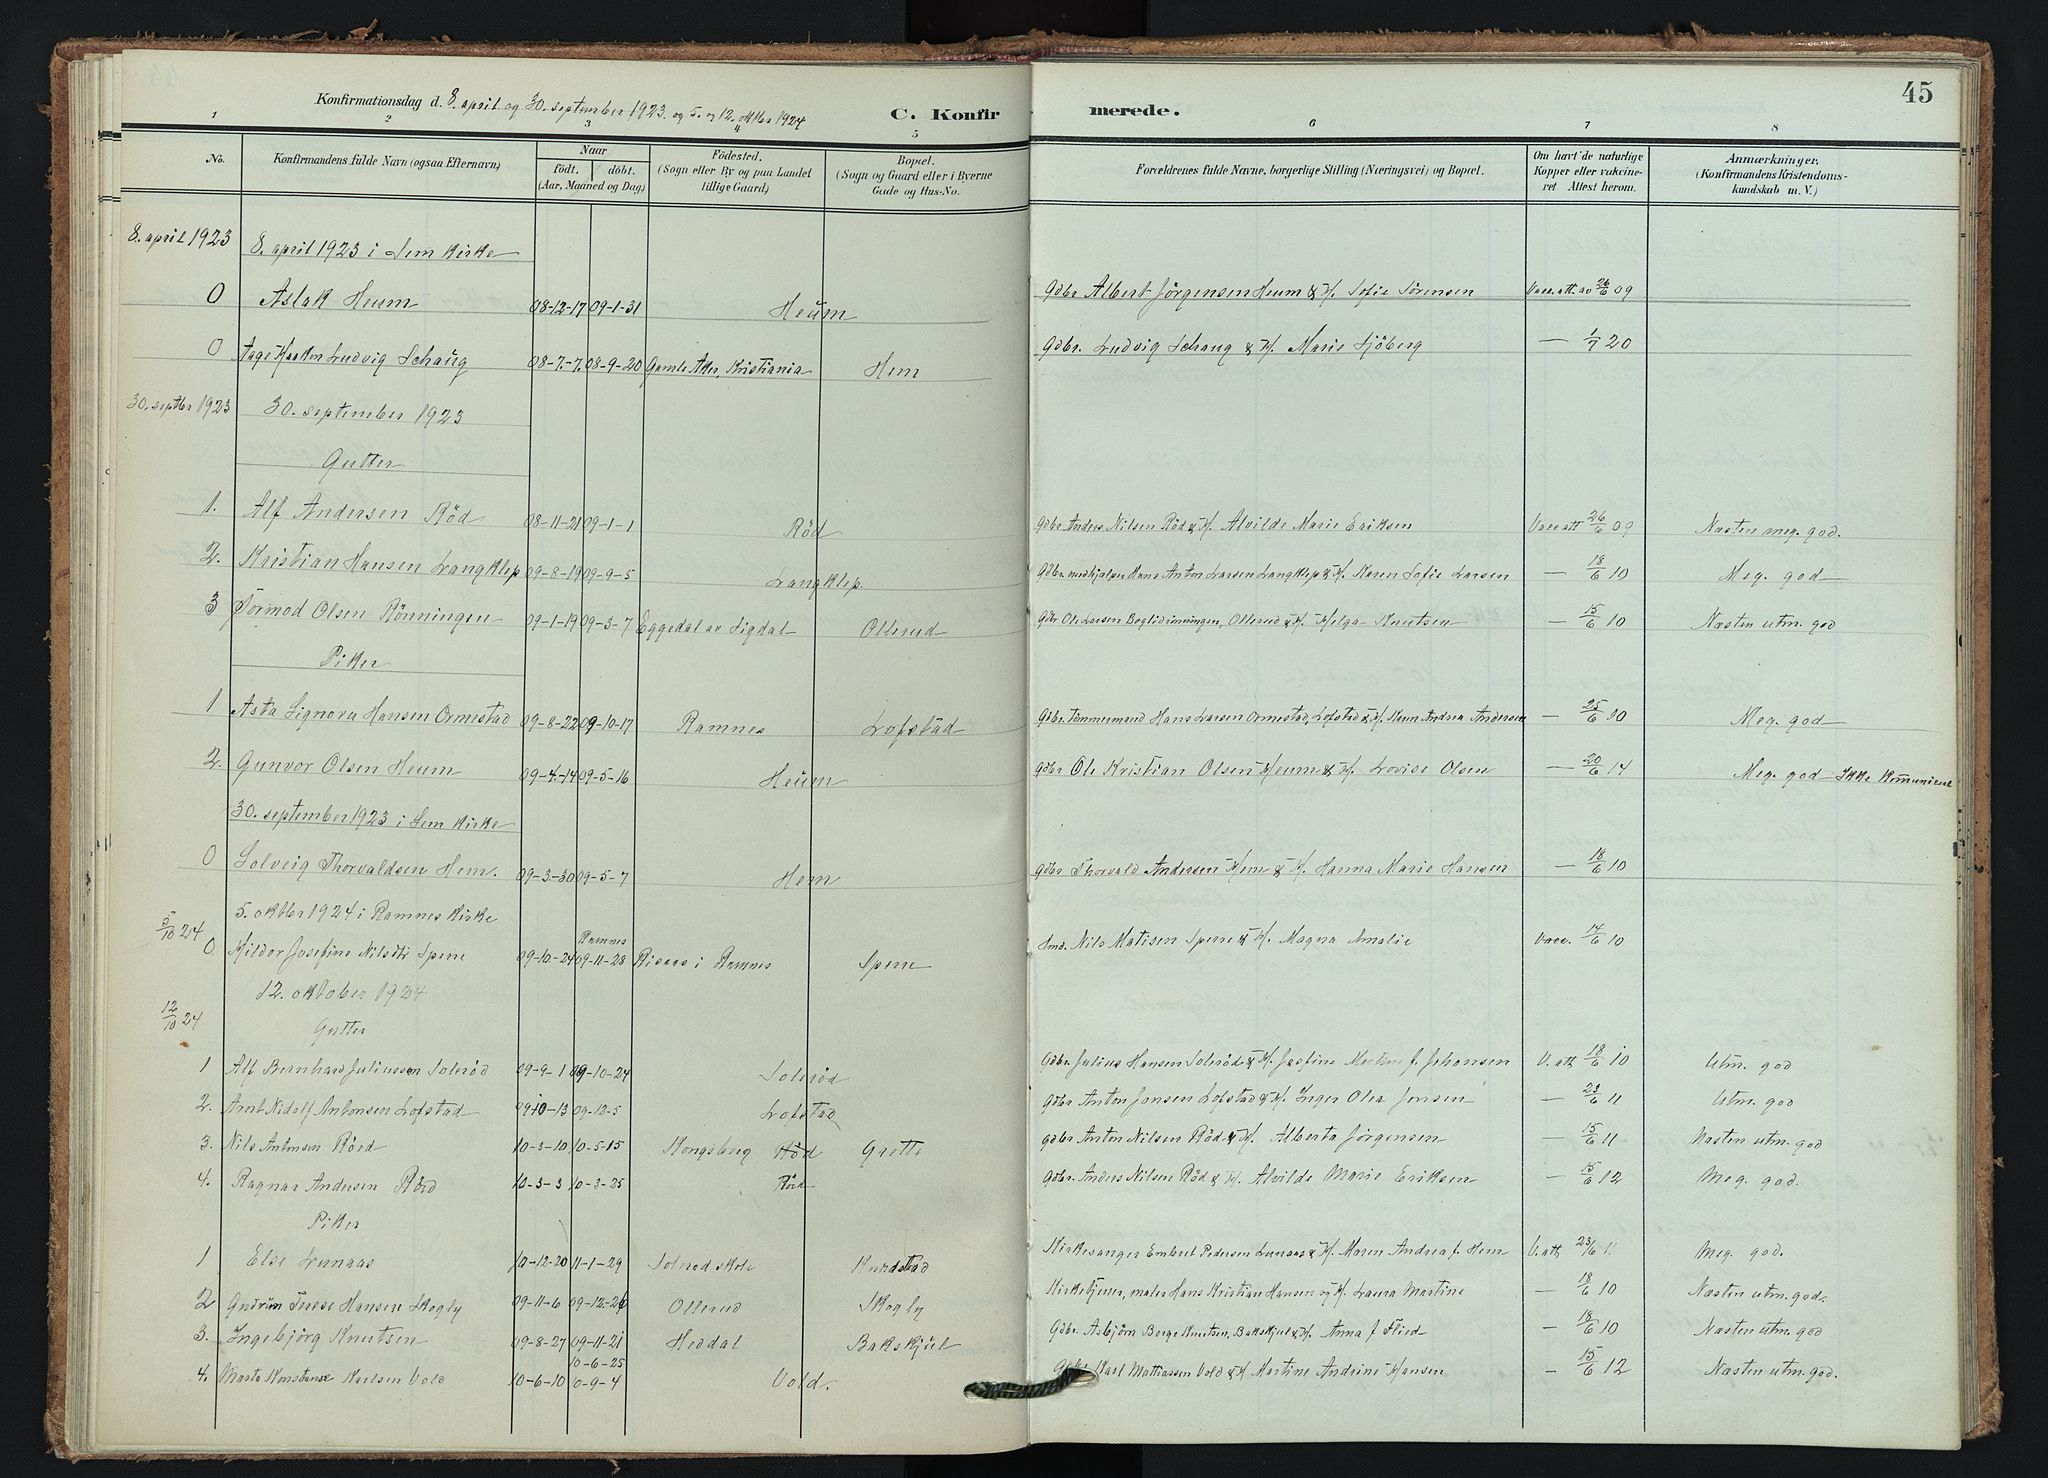 45
Konfirmationsdag d. 8. april og 30. september 1923 og 5. og 12. oktbr 1924 C. Konfir merede.
1 2 3 4 5 6 7 8
No. Konfirmandens fulde Navn (ogsaa Efternavn). Naar födt. döbt. (Aar, Maaned og Dag) Födested. (Sogn eller By og paa Landet tillige Gaard) Bopæl. (Sogn og Gaard eller i Byerne Gade og Hus-No. Forældrenes fulde Navne, borgerlige Stilling (Næringsvei) og Bopæl. Om havt de naturlige Kopper eller vakcineret Attest herom. Anmærkninger. (Konfirmandens Kristendomskundskab m. V.)
8. april 1923 8. april 1923 i Sem kirke
0 Aslak Heum 08-12-17 09-1-31 Heum Gdbr Albert Jörgensen Heum & H. Sofie Sörensen Vacc. att. av 26/6 09
0 Aage Haakon Ludvig Schaug 08-7-7 08-9-20 Gamle Aker, Kristiania Hem Gdbr. Ludvig Schaug & H. Marie Sjöberg — 1/7 20
30. septbr 1923 30. september 1923
Gutter
1. Alf Andersen Röd 08-11-21 09-1-1 Röd Gdbr Anders Nilsen Röd & H. Alvilde Marie Eriksen Vacc att 26/6 09 Næsten meg. god.
2. Kristian Hansen Langklep 09-8-19 09-9-5 Langklep. Gdbr. Hans Anton Larsen Langklep & H. Karen Sofie Larsen — 18/6 10 Meg. god
3 Tormod Olsen Rönningen 09-1-19 09-3-7 Eggedal av Sigdal Ollerud Gdbr Ole Larsen Beglidrönningen, Ollerud & H. Helga Knutsen — 15/6 10 Næsten utm. god
Piker
1 Asta Signora Hansen Ormestad 09-8-22 09-10-17 Ramnes Lofstad Gdbr. Tömmermand Hans Larsen Ormestad, Lofstad & H. Karen Andrea Andersen — 25/6 10 Meg. god
2. Gunvor Olsen Heum 09-4-14 09-5-16 Heum Gdbr Ole Kristian Olsen Heum & H. Lovise Olsen — 20/6 14 Meg. god – Ikke komunicent
30. september 1923 i Sem kirke
0 Solveig Thorvaldsen Hem. 09-3-30 09-5-7 Hem Gdbr Thorvald Andersen Hem & H. Hanna Marie Hansen — 18/6 10
5/10 24 5. oktber 1924 i Ramnes kirke
0 Hildor Josefine Nilsdt. Sperre 09-10-24 Ramnes 09-11-28 i Ramnes Sperre Smd. Nils Matisen Sperre & H. Magna Amalie Vacc. 14/6 10
12/10 24 12. oktober 1924
Gutter
1 Alf Bernhard Juliussen Soleröd 09-9-1 09-10-24 Soleröd Gdbr. Julius Hansen Soleröd & H. Josefine Martine f. Johansen V. att 18/6 10 Utm. god
2. Arnt Nidolf Antonsen Lofstad 09-10-13 09-12-5 Lofstad Gdbr Anton Jonsen Lofstad & H. Inger Olea Jonsen — 23/6 11 Utm. god
3. Nils Antonsen Röed 10-3-10 10-5-15 Kongsberg Röd Grette Gdbr Anton Nilsen Röd & H. Alberta Jörgensen — 15/6 11 Næsten utm. god
4. Ragnar Andersen Röed 10-3-3 10-3-25 Röed Gdbr. Anders Nilsen Röd & H. Alvilde Marie Eriksen — 15/6 12 Meg. god.
Piker
1 Else Lunaas 10-12-20 11-1-29 Solerod skole Knardstad Kirkesanger Embret Pedersen Lunaas & H. Maren Andrea f. Hem V. att 23/6 11 Meg. god.
2 Gudrun Terese Hansen Skogly 09-11-6 09-12-26 Ollerud Skogly Kirketjener, maler Hans Kristian Hansen og H. Laura Martine — 18/6 10 Næsten utm. god.
3. Ingebjörg Knutsen 09-8-27 09-11-21 Heddal Bakskjul Gdbr. Asbjörn Berge Knutsen, Bakskjul & H. Anna f. Flied — 18/6 10 Næsten utm. god
4. Marta Konstanse Karlsen Vold 10-6-10 10-6-25 10-9-4 Vold. Gdbr Karl Mathiassen Vold & H. Martine Andrine Hansen — 15/6 12 Næsten utm. god.